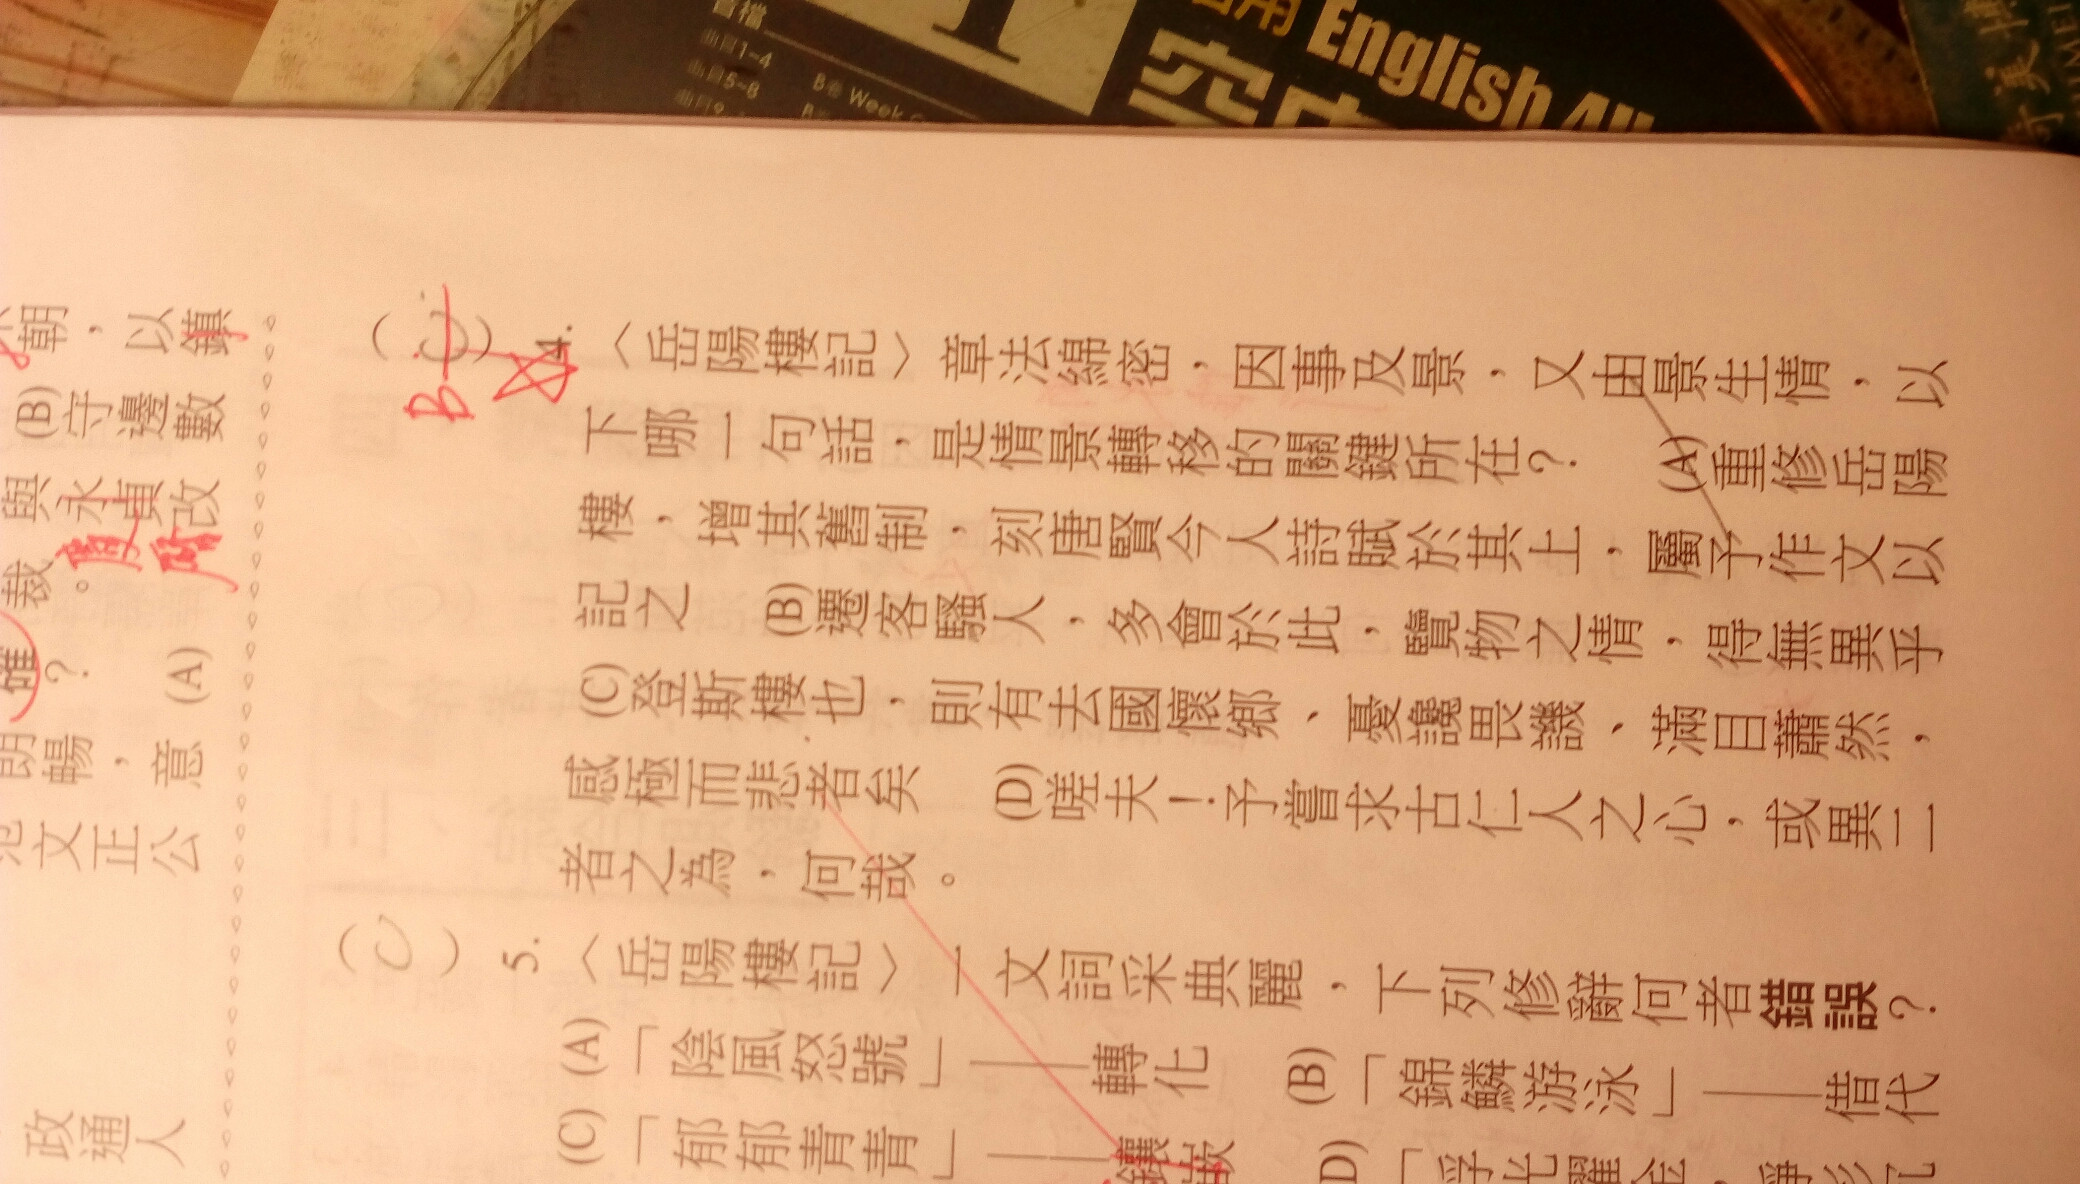 English 4U
音檔
曲目1-4
曲目5-8
B卷 Week
朝，以鎮
(B)守邊數
與永貞改
裁。
確？ (A)
朗暢，意
范文正公
政通人
B
(C) 4. 〈岳陽樓記〉章法綿密，因事及景，又由景生情，以
下哪一句話，是情景轉移的關鍵所在？ (A)重修岳陽
樓，增其舊制，刻唐賢今人詩賦於其上，屬予作文以
記之 (B)遷客騷人，多會於此，覽物之情，得無異乎
(C)登斯樓也，則有去國懷鄉、憂讒畏譏、滿目蕭然，
感極而悲者矣 (D)嗟夫！予嘗求古仁人之心，或異二
者之為，何哉。
(C) 5. 〈岳陽樓記〉一文詞采典麗，下列修辭何者錯誤？
(A)「陰風怒號」——轉化 (B)「錦鱗游泳」——借代
(C)「郁郁青青」——鑲嵌 (D)「浮光躍金，靜影沉